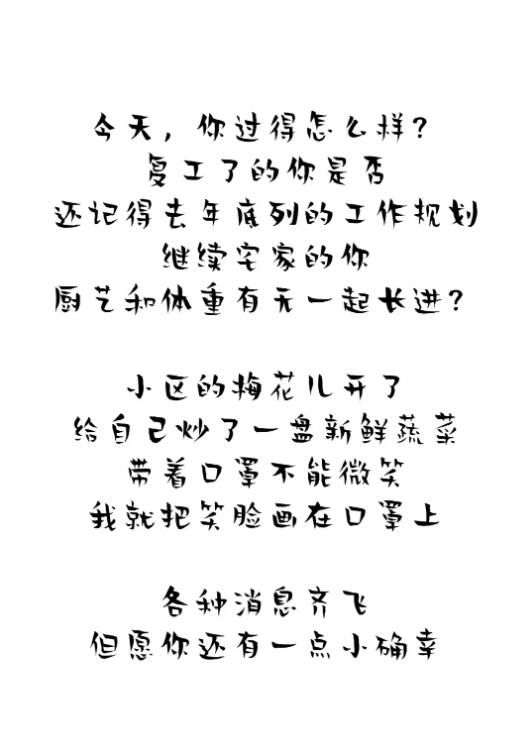 今天，你过得怎么样？
复工了的你是否
还记得去年底列的工作规划
继续宅家的你
厨艺和体重有无一起长进？
小区的梅花儿开了
给自己炒了一盘新鲜蔬菜
带着口罩不能微笑
我就把笑脸画在口罩上
各种消息齐飞
但愿你还有一点小确幸